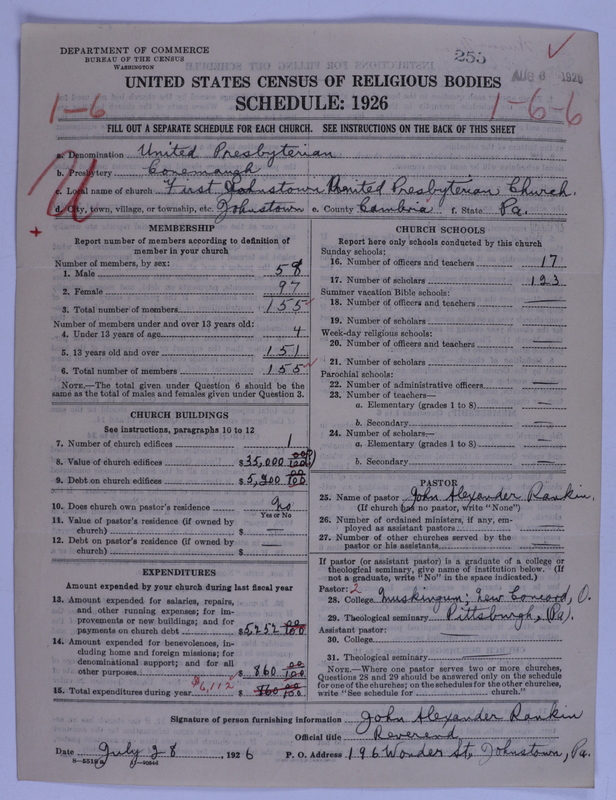 DEPARTMENT OF COMMERCE
BUREAU OF THE CENSUS
WASHINGTON
255
AUG 6 1926
UNITED STATES CENSUS OF RELIGIOUS BODIES
SCHEDULE: 1926
1-6
1-6-6
FILL OUT A SEPARATE SCHEDULE FOR EACH CHURCH. SEE INSTRUCTIONS ON THE BACK OF THIS SHEET
a. Denomination United Presbyterian
b. Presbytery Conemaugh
c. Local name of church First Johnstown United Presbyterian Church.
d. City, town, village, or township, etc. Johnstown e. County Cambria f. State Pa.
MEMBERSHIP
Report number of members according to definition of
member in your church
Number of members, by sex:
1. Male 58
2. Female 97
3. Total number of members 155
Number of members under and over 13 years old:
4. Under 13 years of age 4
5. 13 years old and over 151
6. Total number of members 155
NOTE.—The total given under Question 6 should be
same as the total of males and females given under Question 3.
CHURCH BUILDINGS
See instructions, paragraphs 10 to 12
7. Number of church edifices 1
8. Value of church edifices $35,000 00/100
9. Debt on church edifices $5,200 00/100
10. Does church own pastor's residence No
Yes or No
11. Value of pastor's residence (if owned by
church) $ —
12. Debt on pastor's residence (if owned by
church) $ —
EXPENDITURES
Amount expended by your church during last fiscal year
13. Amount expended for salaries, repairs,
and other running expenses; for im-
provements or new buildings; and for
payments on church debt $5252 00/100
14. Amount expended for benevolences, in-
cluding home and foreign missions; for
denominational support; and for all
other purposes $ 860 00/100
$6,112
15. Total expenditures during year $ 860 00/100
CHURCH SCHOOLS
Report here only schools conducted by this church
Sunday schools:
16. Number of officers and teachers 17
17. Number of scholars 123
Summer vacation Bible schools:
18. Number of officers and teachers —
19. Number of scholars —
Week-day religious schools:
20. Number of officers and teachers —
21. Number of scholars —
Parochial schools:
22. Number of administrative officers —
23. Number of teachers—
a. Elementary (grades 1 to 8) —
b. Secondary —
24. Number of scholars—
a. Elementary (grades 1 to 8) —
b. Secondary —
PASTOR
25. Name of pastor John Alexander Rankin.
(If church has no pastor, write "None")
26. Number of ordained ministers, if any, em-
ployed as assistant pastors —
27. Number of other churches served by the
pastor or his assistants —
If pastor (or assistant pastor) is a graduate of a college or
theological seminary, give name of institution below. (If
not a graduate, write "No" in the space indicated.)
Pastor: 2
28. College Muskingum; New Concord, O.
29. Theological seminary Pittsburgh, (Pa).
Assistant pastor:
30. College
31. Theological seminary
NOTE.—Where one pastor serves two or more churches,
Questions 28 and 29 should be answered only on the schedule
for one of the churches; on the schedules for the other churches,
write "See schedule for church."
Signature of person furnishing information John Alexander Rankin
Official title Reverend
Date July 28, 1926 P. O. Address 196 Wonder St, Johnstown, Pa.